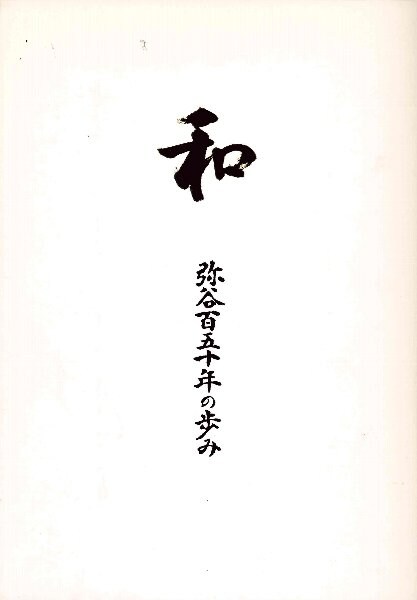 和
弥谷百五十年の歩み